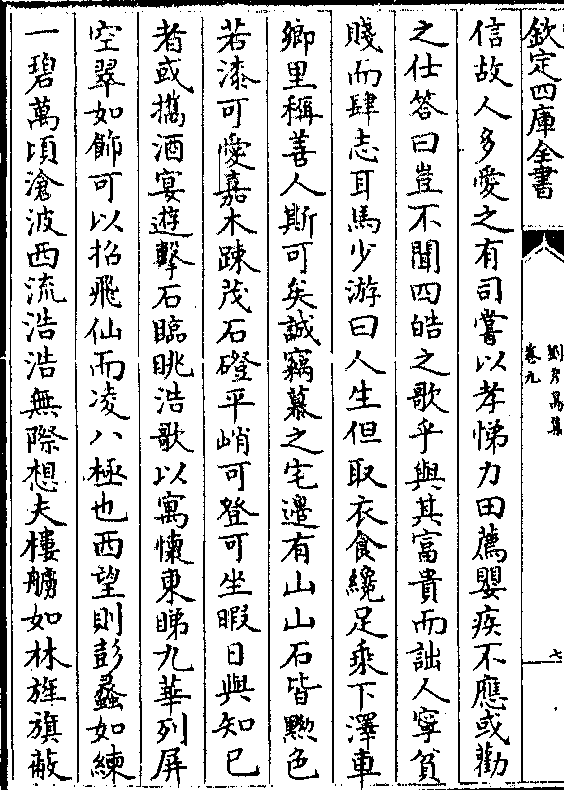 欽定四庫全書
卷九
七
信故人多愛之有司嘗以孝悌力田薦嬰疾不應或勸
之仕答曰豈不聞四皓之歌乎與其富貴而詘人寧貧
賤而肆志耳馬少游曰人生但取衣食纔足乘下澤車
鄉里稱善人斯可矣誠竊慕之宅邉有山山石皆黝色
若漆可愛嘉木踈茂石磴平峭可登可坐暇日與知已
者或攜酒宴遊擊石臨眺浩歌以寓懐東睇九華列屏
空翠如飾可以招飛仙而凌八極也西望則彭蠡如練
一碧萬頃滄波西流浩浩無際想夫樓艣如林旌旗蔽